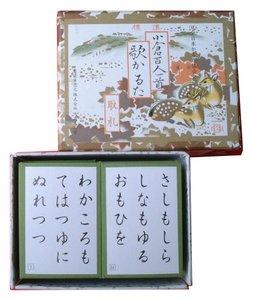 標準
小倉百人一首
歌かるた
取札
さしもしら
しなもゆる
おもひを
わかころも
てはつゆに
ぬれつつ